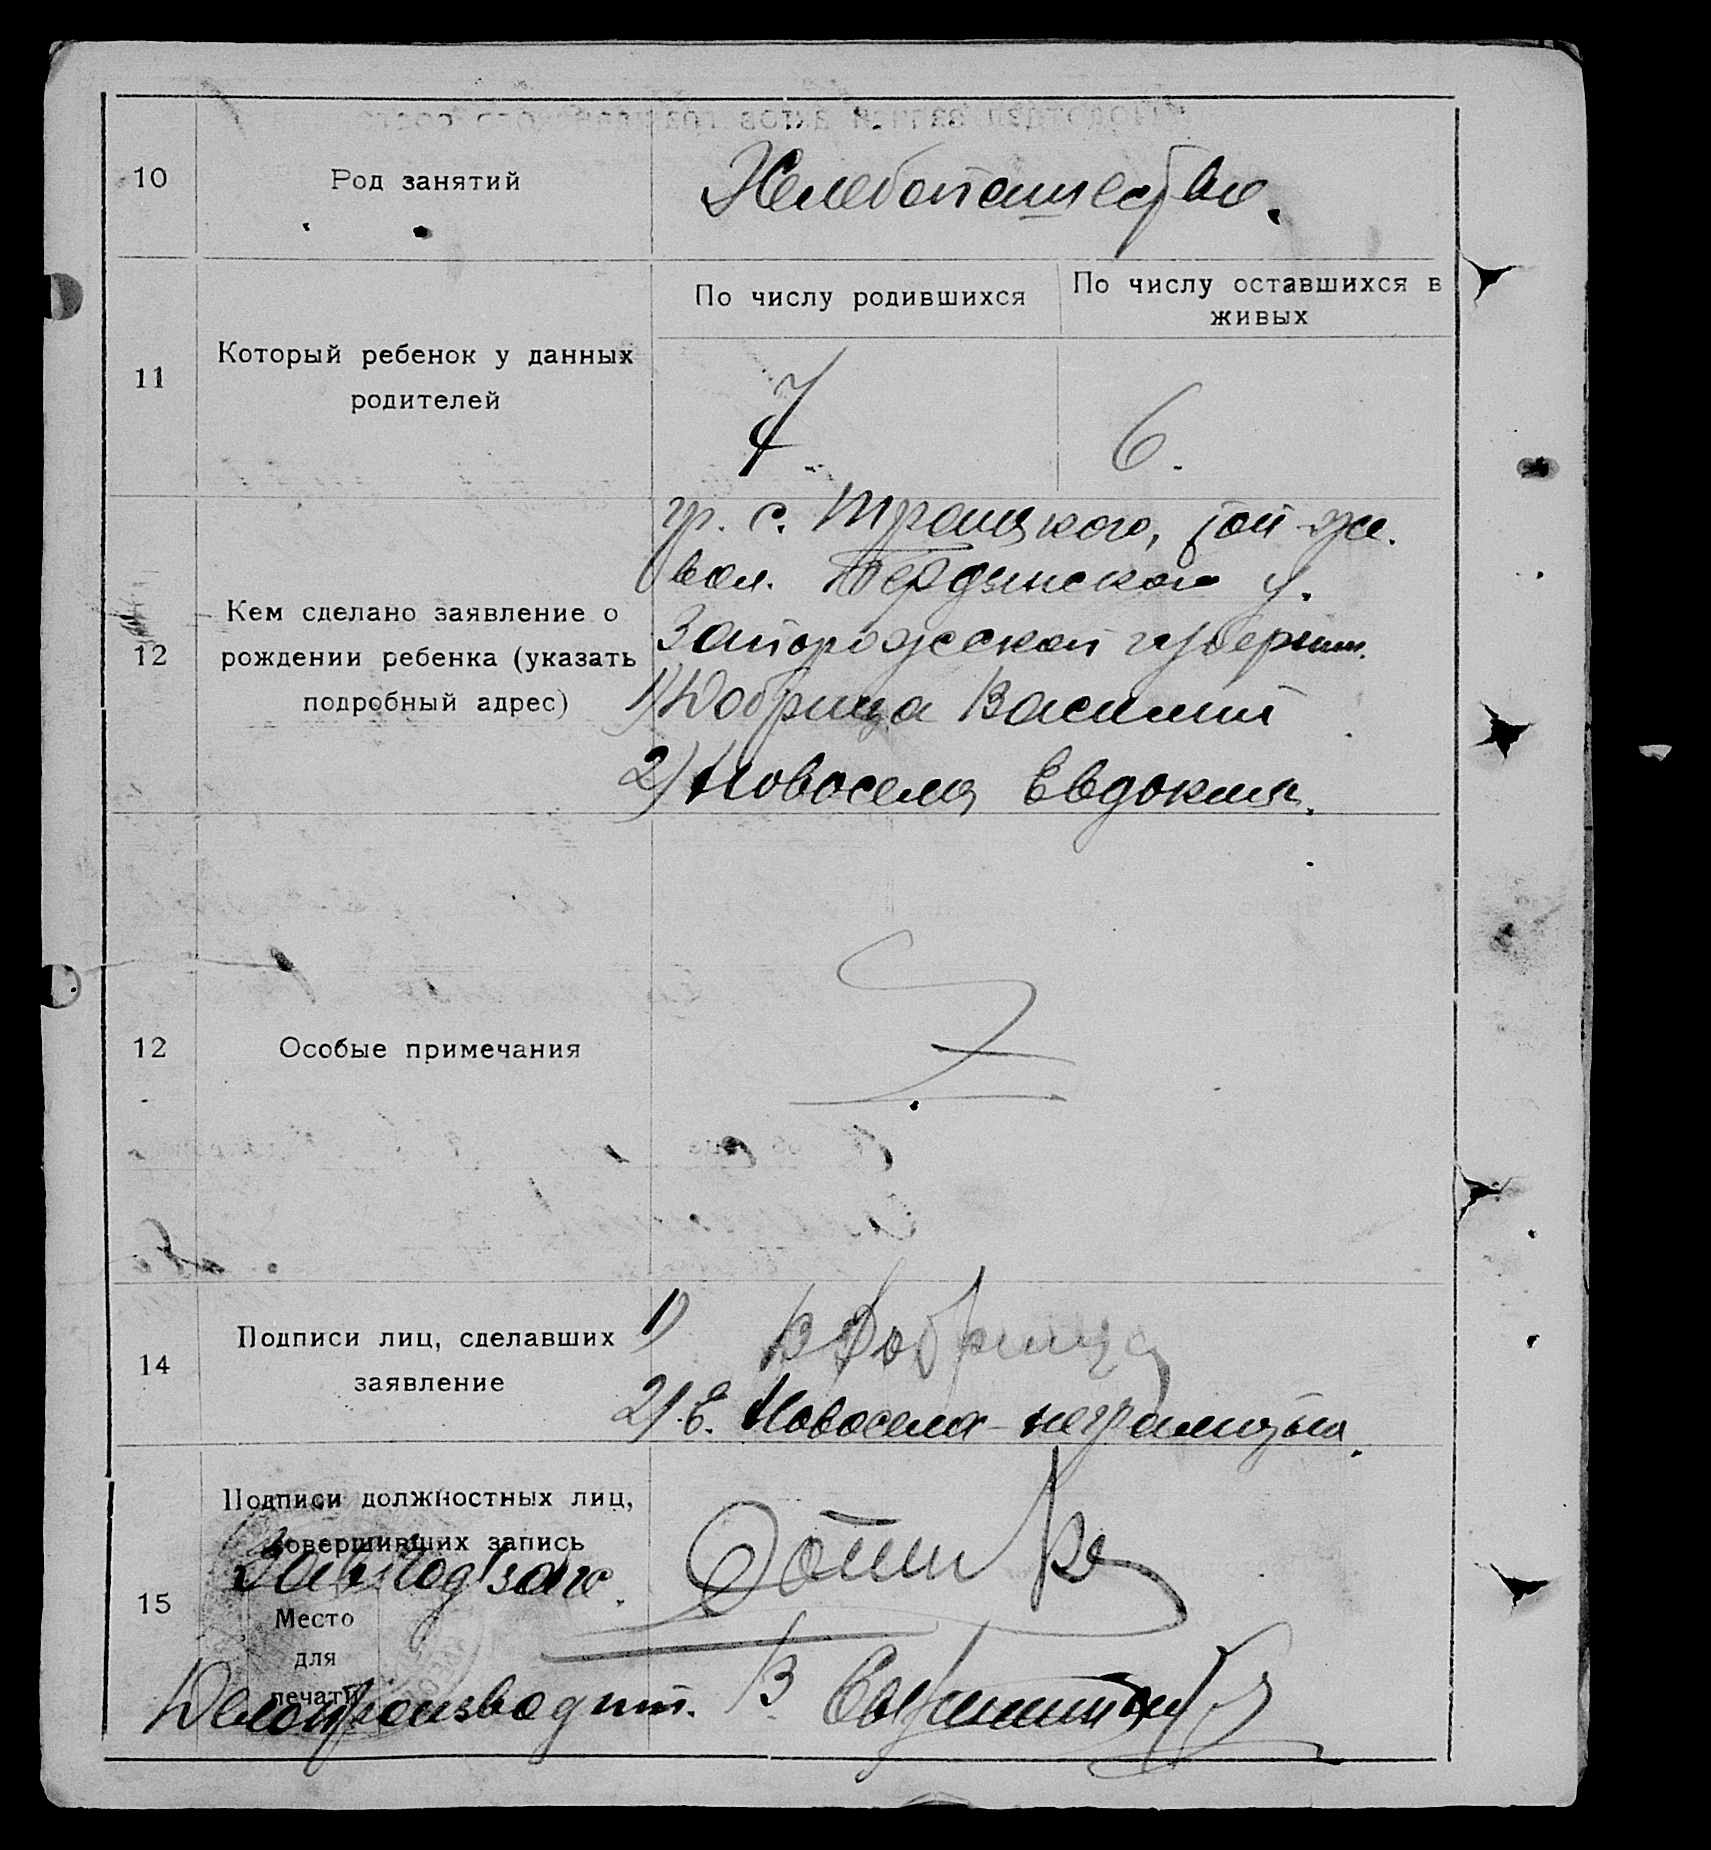 10
Род занятий
Хлебопашество.
11
Который ребенок у данных
родителей
По числу родившихся
По числу оставшихся в
живых
7.
6.
12
Кем сделано заявление о
рождении ребенка (указать
подробный адрес)
гр. с. Троицкого, той-же
вол. Бердянского у.
Запорожской губернии.
1) Добрица Василий
2) Новосела Евдокия.
12
Особые примечания
14
Подписи лиц, сделавших
заявление
1) В Добрица
2) Е. Новосела - неграмотна.
15
Подписи должностных лиц,
совершивших запись
Завподзаг.
Место
для
печати
Делопроизводит. В.